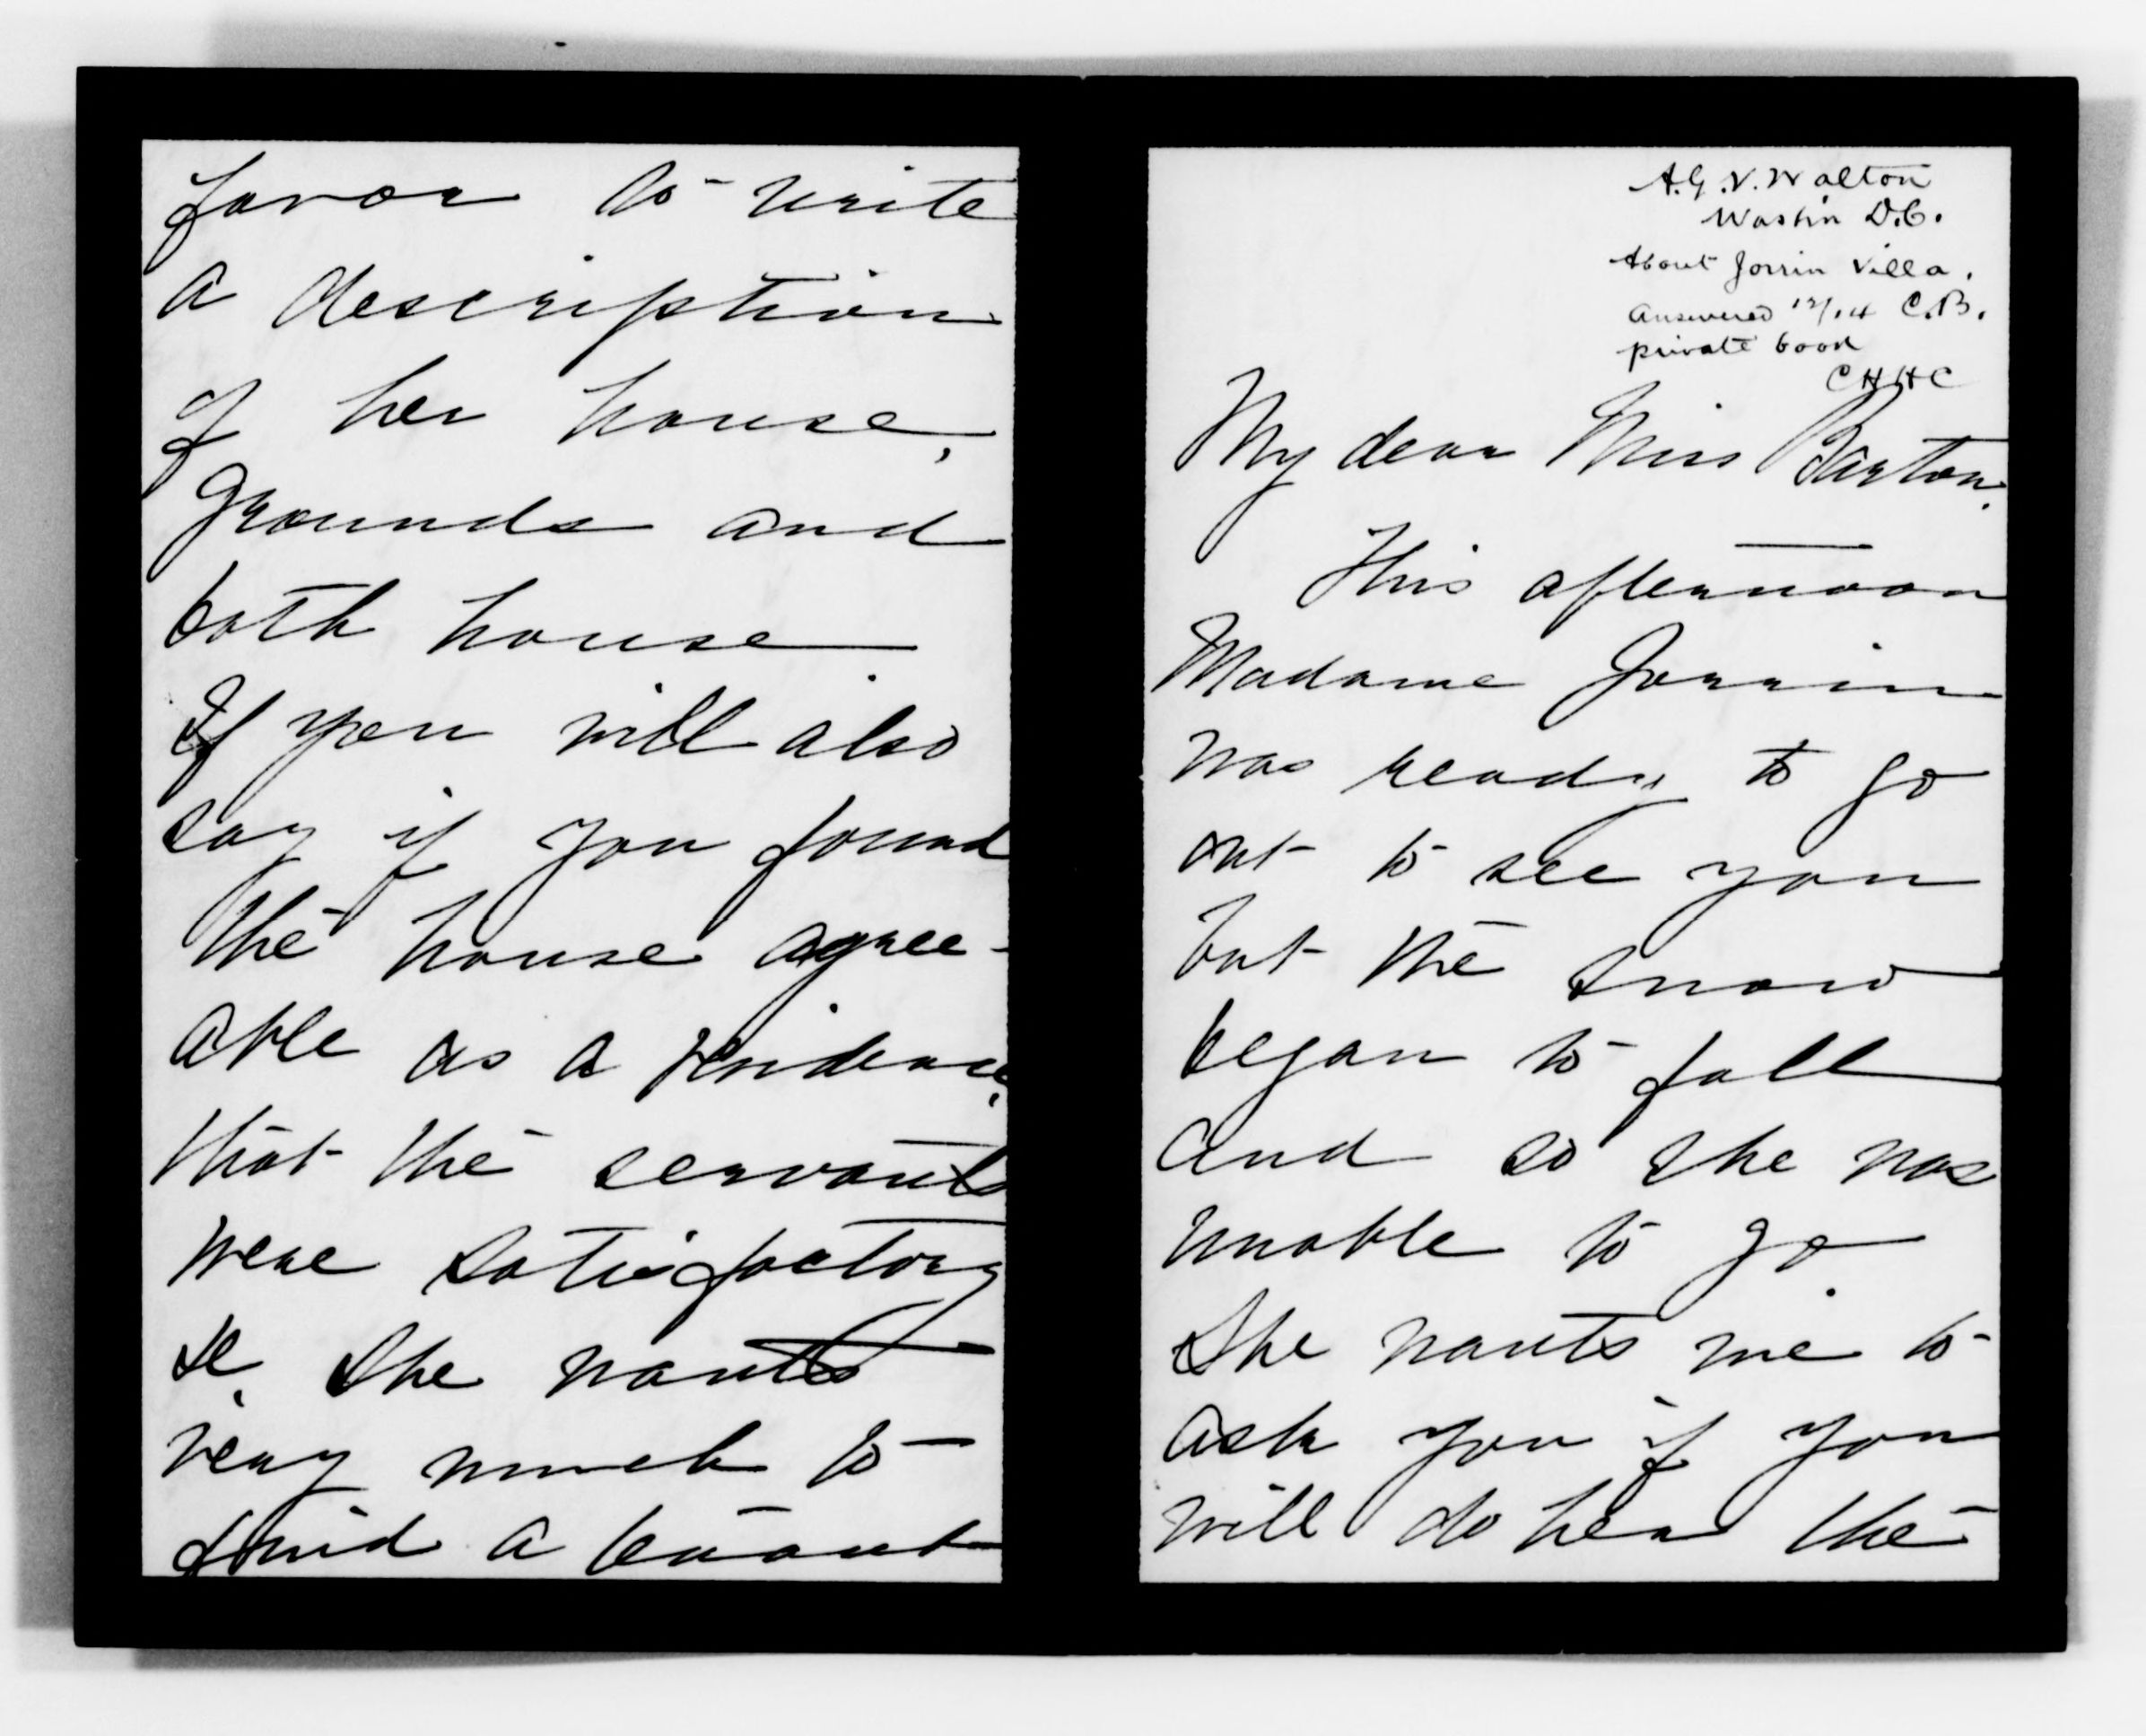 A.G.V. Walton
Washn D.C.
About Jorrin Villa.
Answered 12/14 C.B.
private book
CHHC
My dear Miss Barton.
This afternoon
Madame Jorrin
was ready to go
out to see you
but the snow
began to fall
and so she was
unable to go.
She wants me to
ask you if you
will do her the
favor to write
a description
of her house,
grounds and
bath house.
If you will also
say if you found
the house agree-
able as a residence,
that the servants
were satisfactory
&c. She wants
very much to
find a tenant